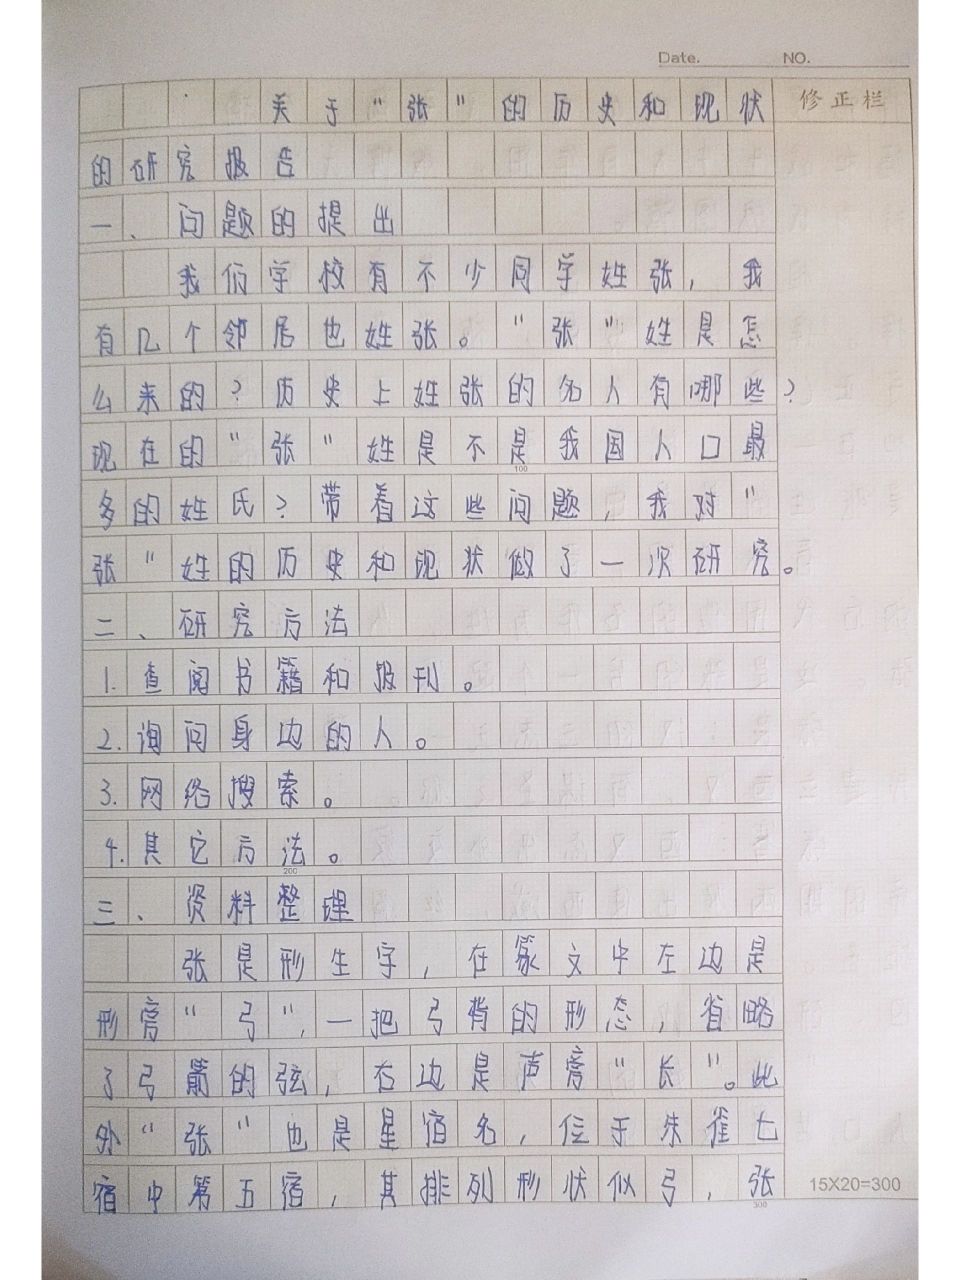 Date. NO.
关于“张”的历史和现状
修正栏
的研究报告
一、问题的提出
我们学校有不少同学姓张，我
有几个邻居也姓张。“张”姓是怎
么来的？历史上姓张的名人有哪些？
现在的“张”姓是不是我国人口最
100
多的姓氏？带着这些问题，我对“
张”姓的历史和现状做了一次研究。
二、研究方法
1.查阅书籍和报刊。
2.询问身边的人。
3.网络搜索。
4.其它方法。
200
三、资料整理
张是形生字，在篆文中左边是
形旁“弓”，一把弓背的形态，省略
了弓箭的弦，右边是声旁“长”。此
外“张”也是星宿名，位于朱雀七
宿中第五宿，其排列形状似弓，张
15X20=300
300